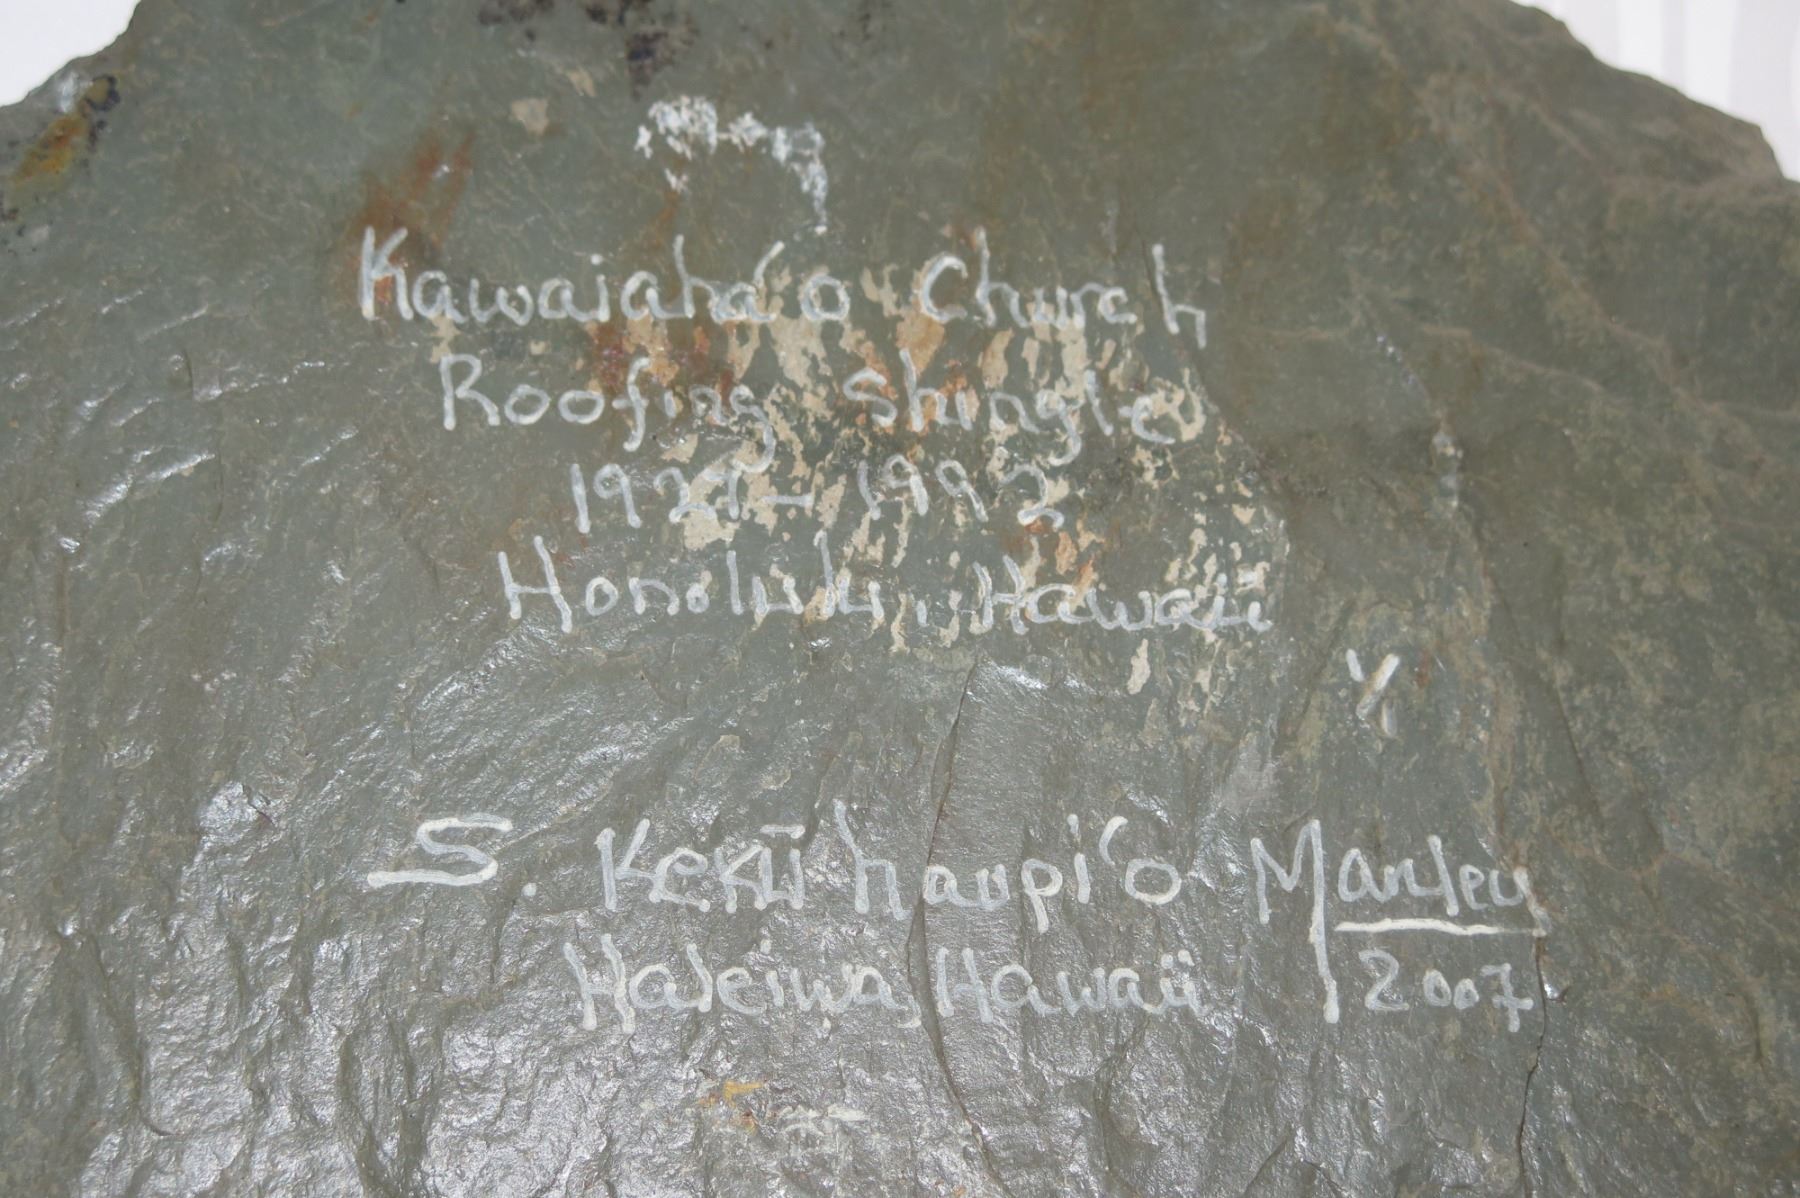 Kawaiaha'o Church
Roofing Shingle
1927-1992
Honolulu, Hawaii
S. Kekūhaupi'o Manley
Haleiwa, Hawaii 2007